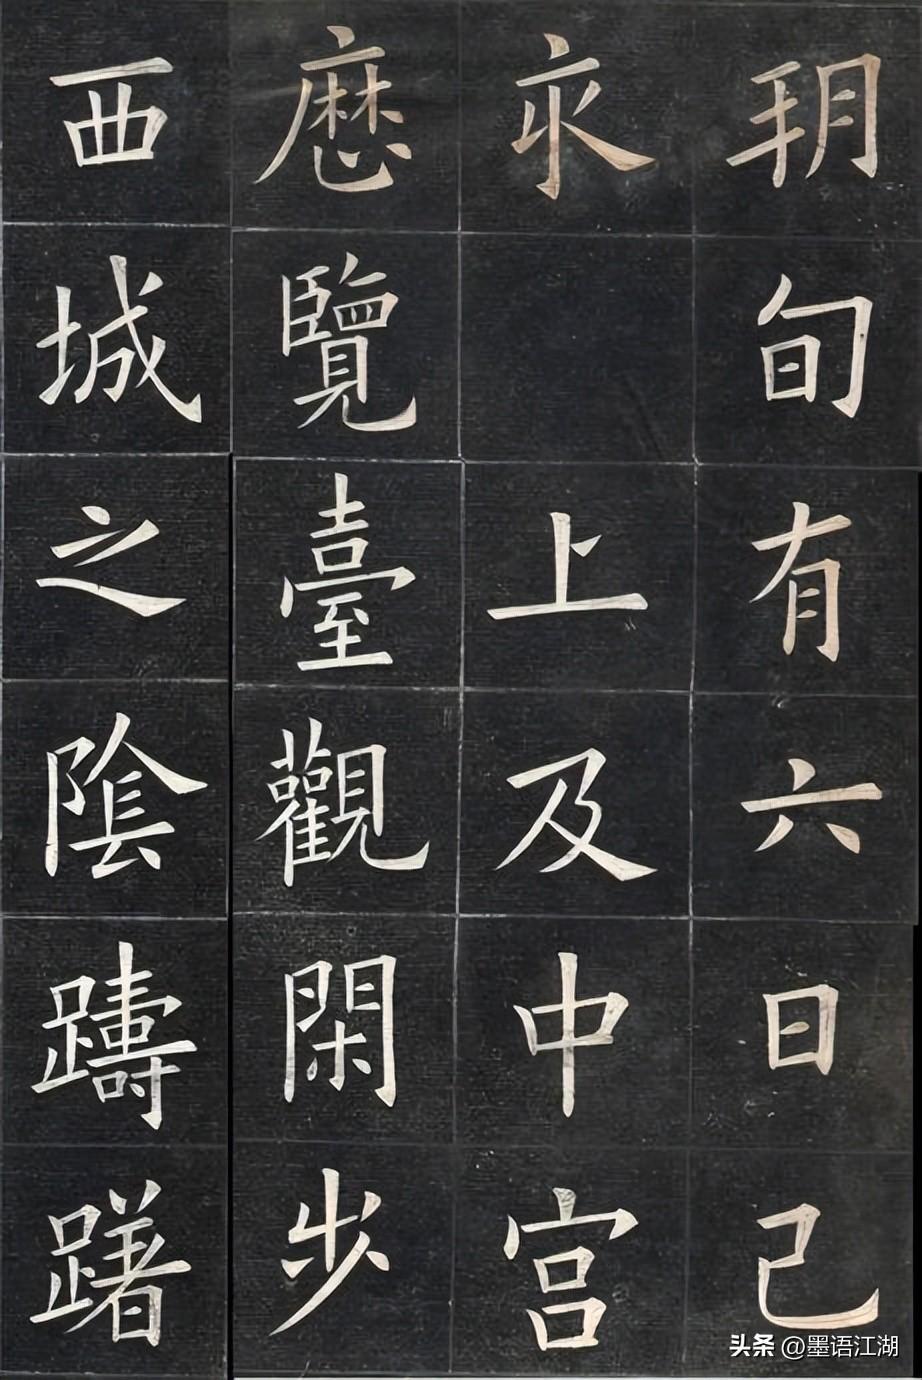 朔旬有六日己
亥 上及中宮
歷覽臺觀閑步
西城之陰躊躇
头条 @墨语江湖